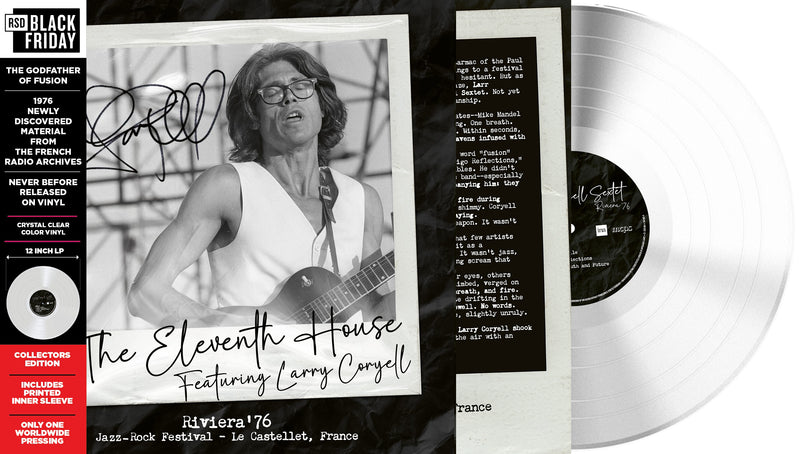 RSD BLACK
FRIDAY
THE GODFATHER
OF FUSION
1976
NEWLY
DISCOVERED
MATERIAL
FROM
THE FRENCH
RADIO ARCHIVES
NEVER BEFORE
RELEASED
ON VINYL
CRYSTAL CLEAR
COLOR VINYL
12 INCH LP
COLLECTORS
EDITION
INCLUDES
PRINTED
INNER SLEEVE
ONLY ONE
WORLDWIDE
PRESSING
The Eleventh House
Featuring Larry Coryell
Riviera'76
Jazz-Rock Festival - Le Castellet, France
armac of the Paul
ngs to a festival
hesitant. But as
Larr
Sextet. Not yet
anship.
ates--Mike Mandel
ng. One breath.
Within seconds,
avens infused with
word "fusion"
igo Reflections,"
bles. He didn't
band--especially
panying him: they
fire during
shimmy. Coryell
aying.
eapon. It wasn't
hat few artists
it as a
It wasn't jazz,
ng scream that
r eyes, others
imbed, verged on
breath, and fire.
e drifting in the
well. No words.
, slightly unruly.
Larry Coryell shook
the air with an
rance
ell Sextet
Riviera '76
ina
lections
th and Future